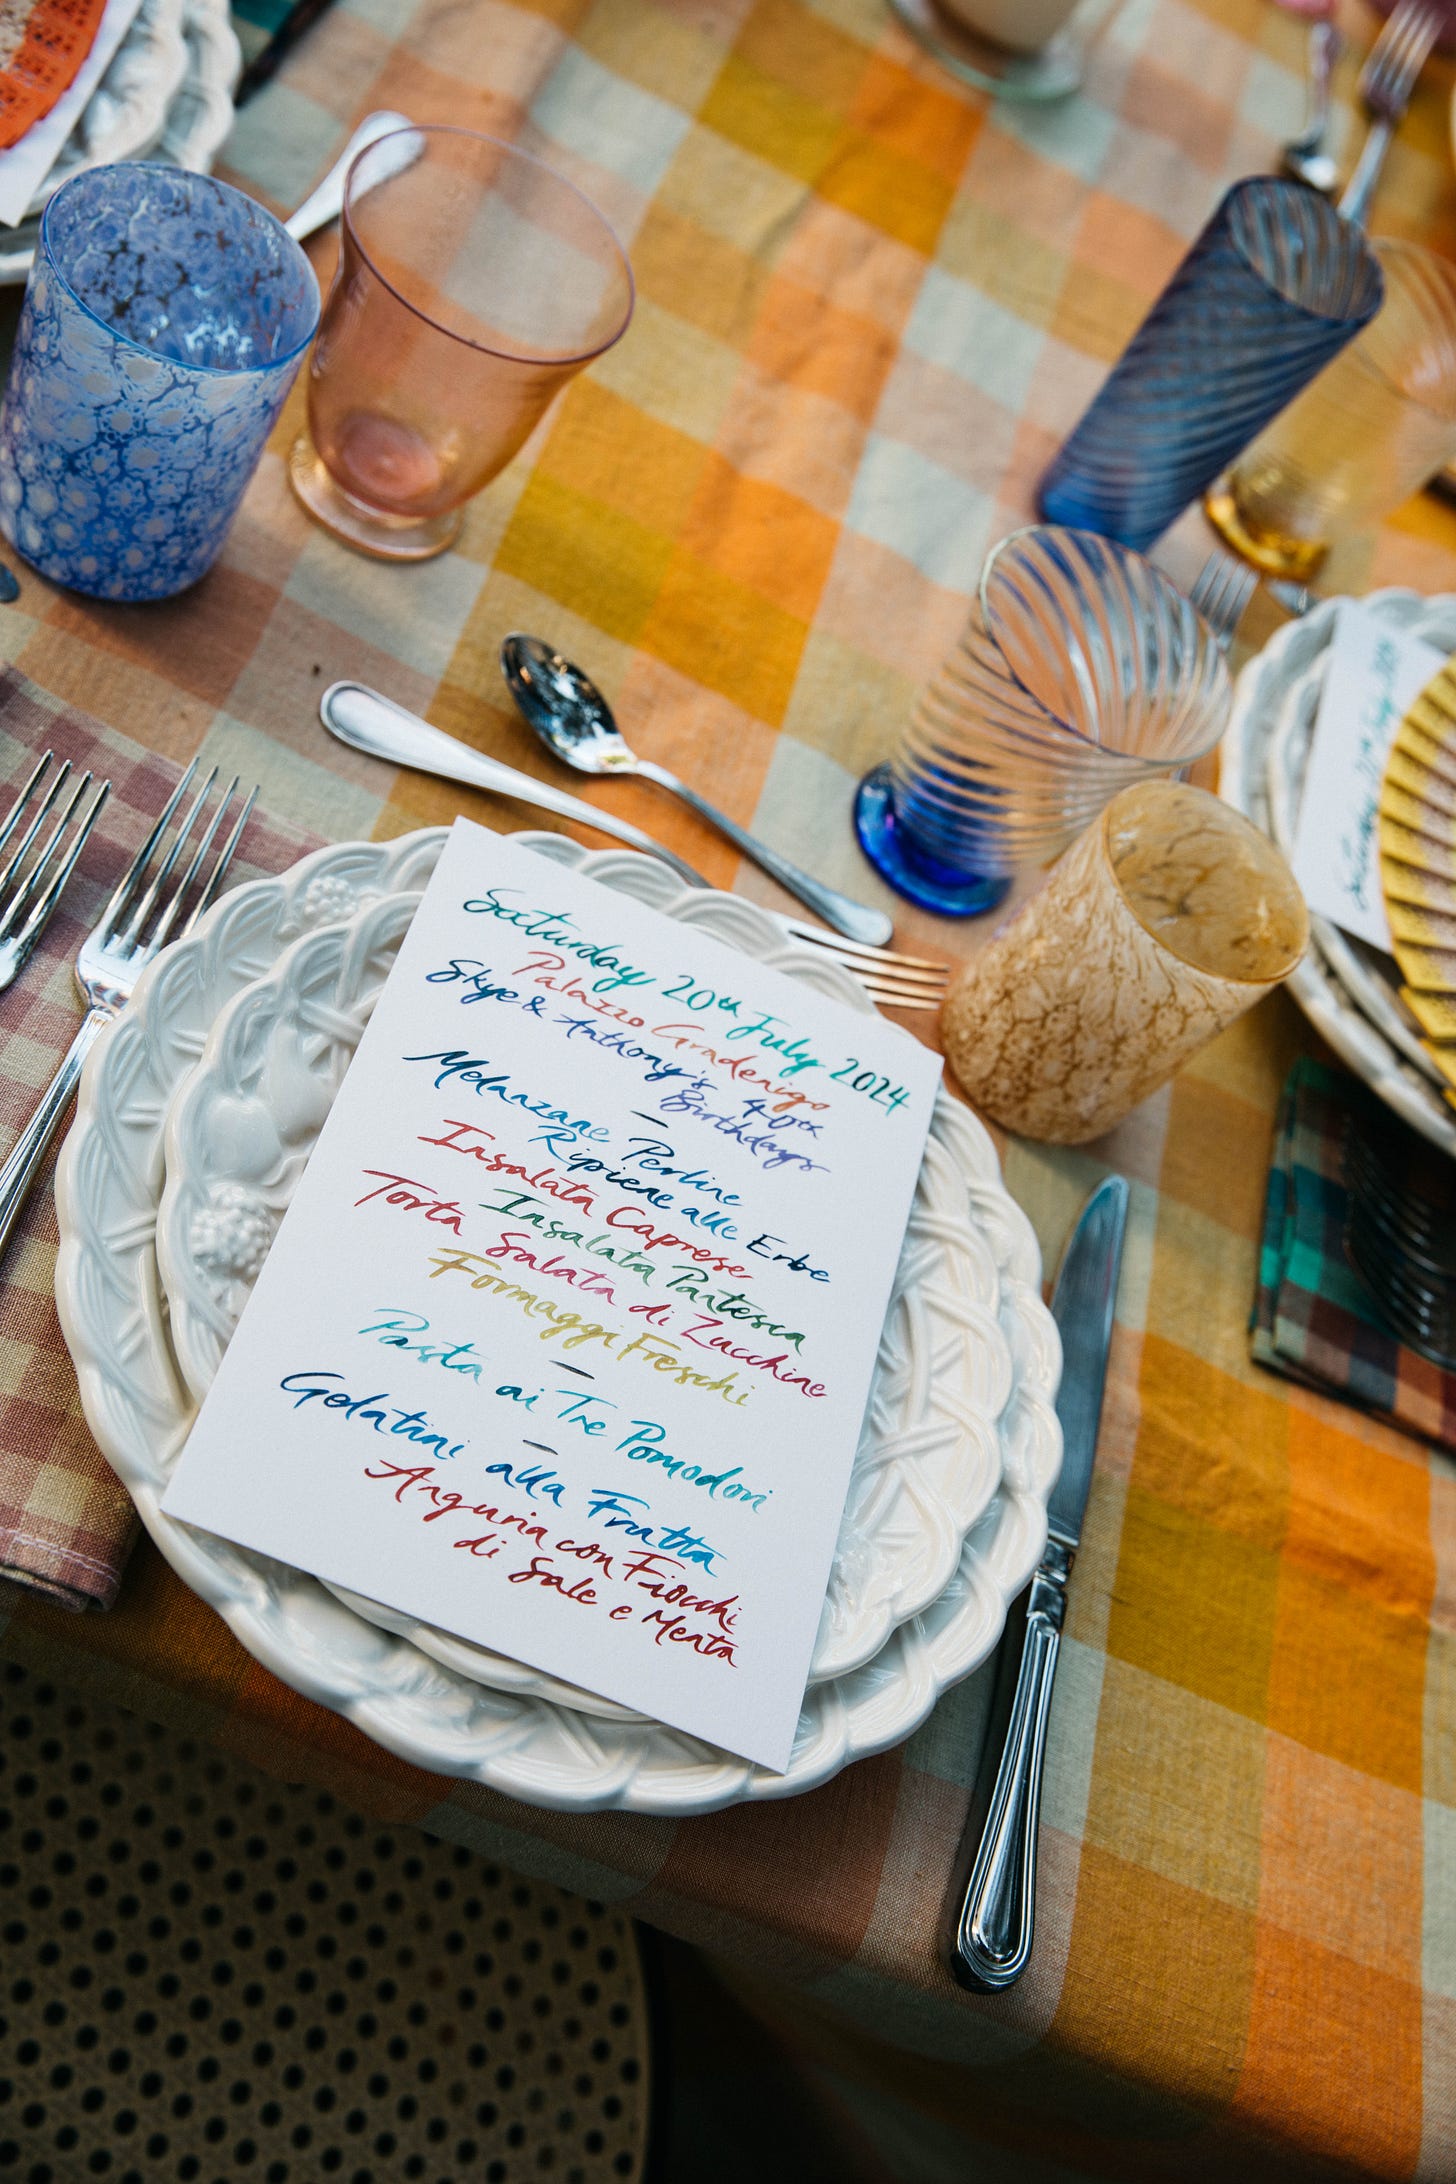 Saturday 20th July 2024
Palazzo Gradenigo
Skye & Anthony's 40th
Birthdays
–
Melanzane Perline
Ripiene alle Erbe
Insalata Caprese
Insalata Pantesca
Torta Salata di Zucchine
Formaggi Freschi
–
Pasta ai Tre Pomodori
–
Gelatini alla Frutta
Anguria con Fiocchi
di Sale e Menta
Saturday 20th July 2024